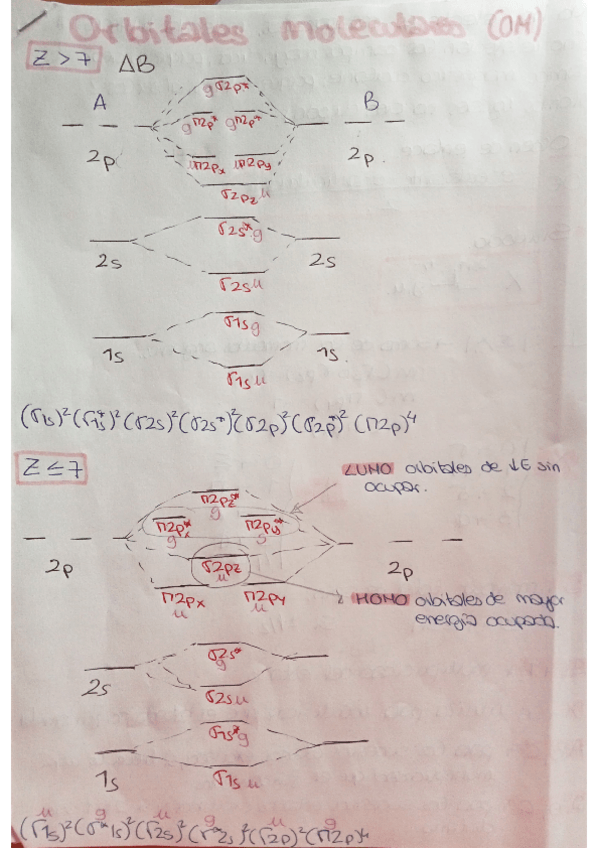 Orbitales moleculares (OM)
Z > 7 ΔB
σ2p*
g
A B
π2p* π2p*
g g
2p 2p
uπ2px uπ2py
σ2pz u
σ2s* g
2s 2s
σ2s u
σ1s g
1s 1s
σ1s u
(σ1s)² (σ1s*)² (σ2s)² (σ2s*)² (σ2p)² (σ2p*)² (π2p)⁴
Z ≤ 7
LUMO orbitales de ↓E sin
ocupar.
π2pz*
g
π2px* π2py*
g g
2p 2p
σ2pz
u
π2px π2py
u u
HOMO orbitales de mayor
energía ocupada.
σ2s*
g
2s
σ2s u
σ1s* g
1s
σ1s u
u g u g u g
(σ1s)² (σ*1s)² (σ2s)² (σ*2s)² (σ2p)² (π2p)⁴